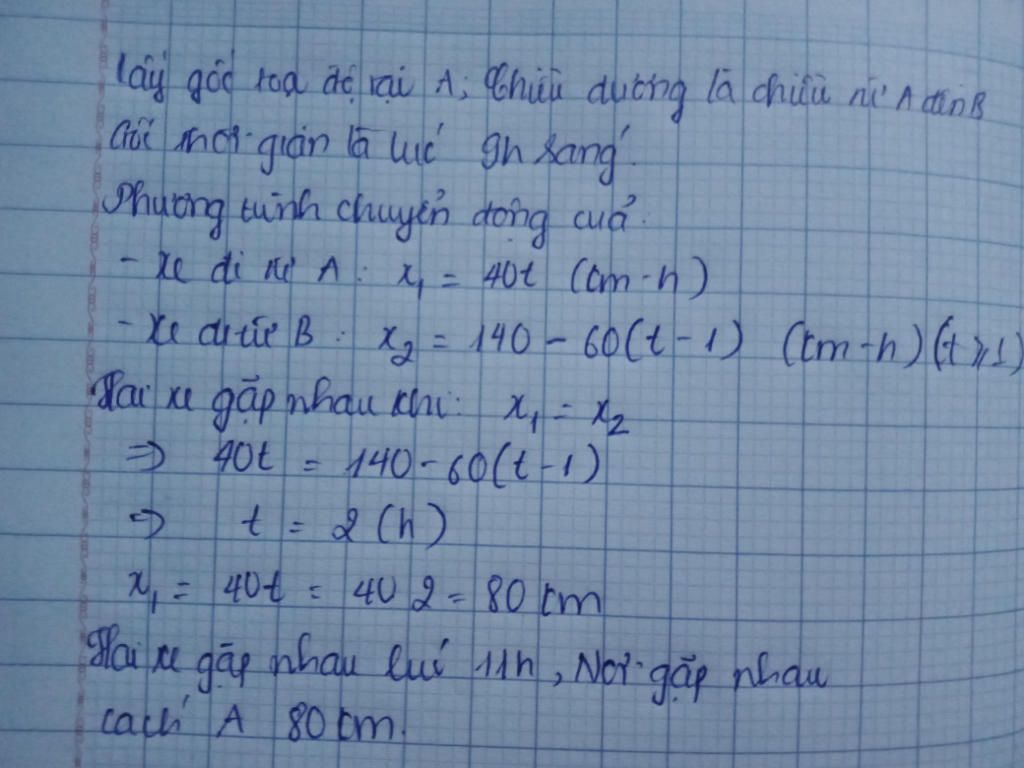 Lấy gốc toạ độ tại A; Chiều dương là chiều từ A đến B
Gốc thời gian là lúc 9h sáng.
Phương trình chuyển động của:
- Xe đi từ A : x₁ = 40t (km-h)
- Xe đi từ B : x₂ = 140 - 60(t-1) (km-h) (t ≥ 1)
Hai xe gặp nhau khi: x₁ = x₂
⇒ 40t = 140 - 60(t-1)
⇒ t = 2 (h)
x₁ = 40t = 40 2 = 80 km
Hai xe gặp nhau lúc 11h, Nơi gặp nhau
cách A 80 km.